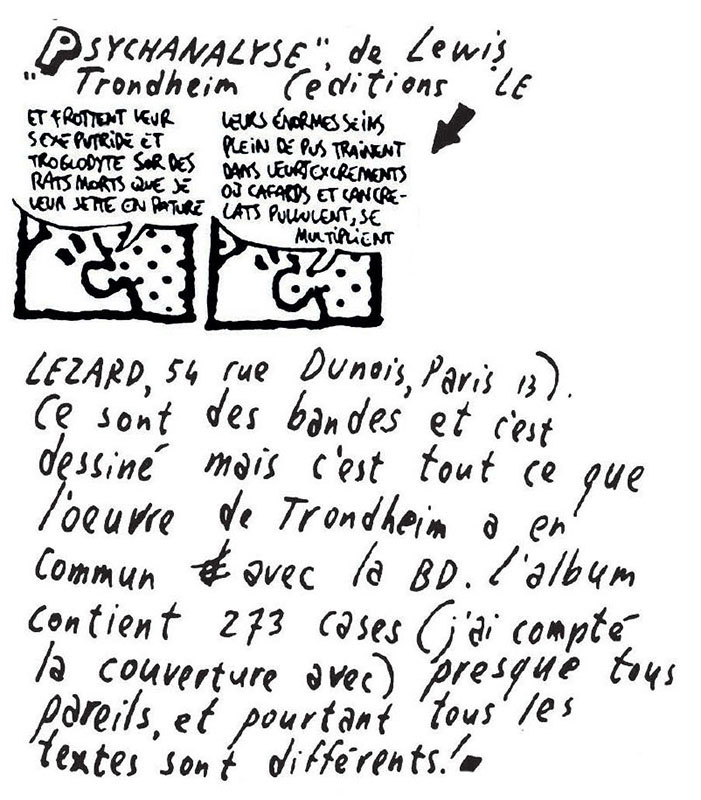 "PSYCHANALYSE", de Lewis
Trondheim (editions LE
ET FROTTENT LEUR
SEXE PUTRIDE ET
TROGLODYTE SUR DES
RATS MORTS QUE JE
LEUR JETTE EN PATURE
LEURS ÉNORMES SEINS
PLEIN DE PUS TRAINENT
DANS LEURS EXCREMENTS
OÙ CAFARDS ET CANCRE-
LATS PULLULENT, SE
MULTIPLIENT
LEZARD, 54 rue Dunois, Paris 13).
Ce sont des bandes et c'est
dessiné mais c'est tout ce que
l'oeuvre de Trondheim a en
commun avec la BD. L'album
contient 273 cases (j'ai compté
la couverture avec) presque tous
pareils, et pourtant tous les
textes sont différents!